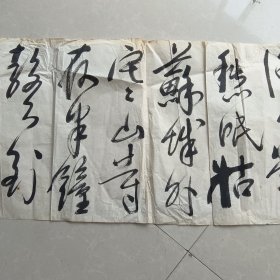 愁眠姑
蘇城外
寒山寺
夜半鐘
聲到